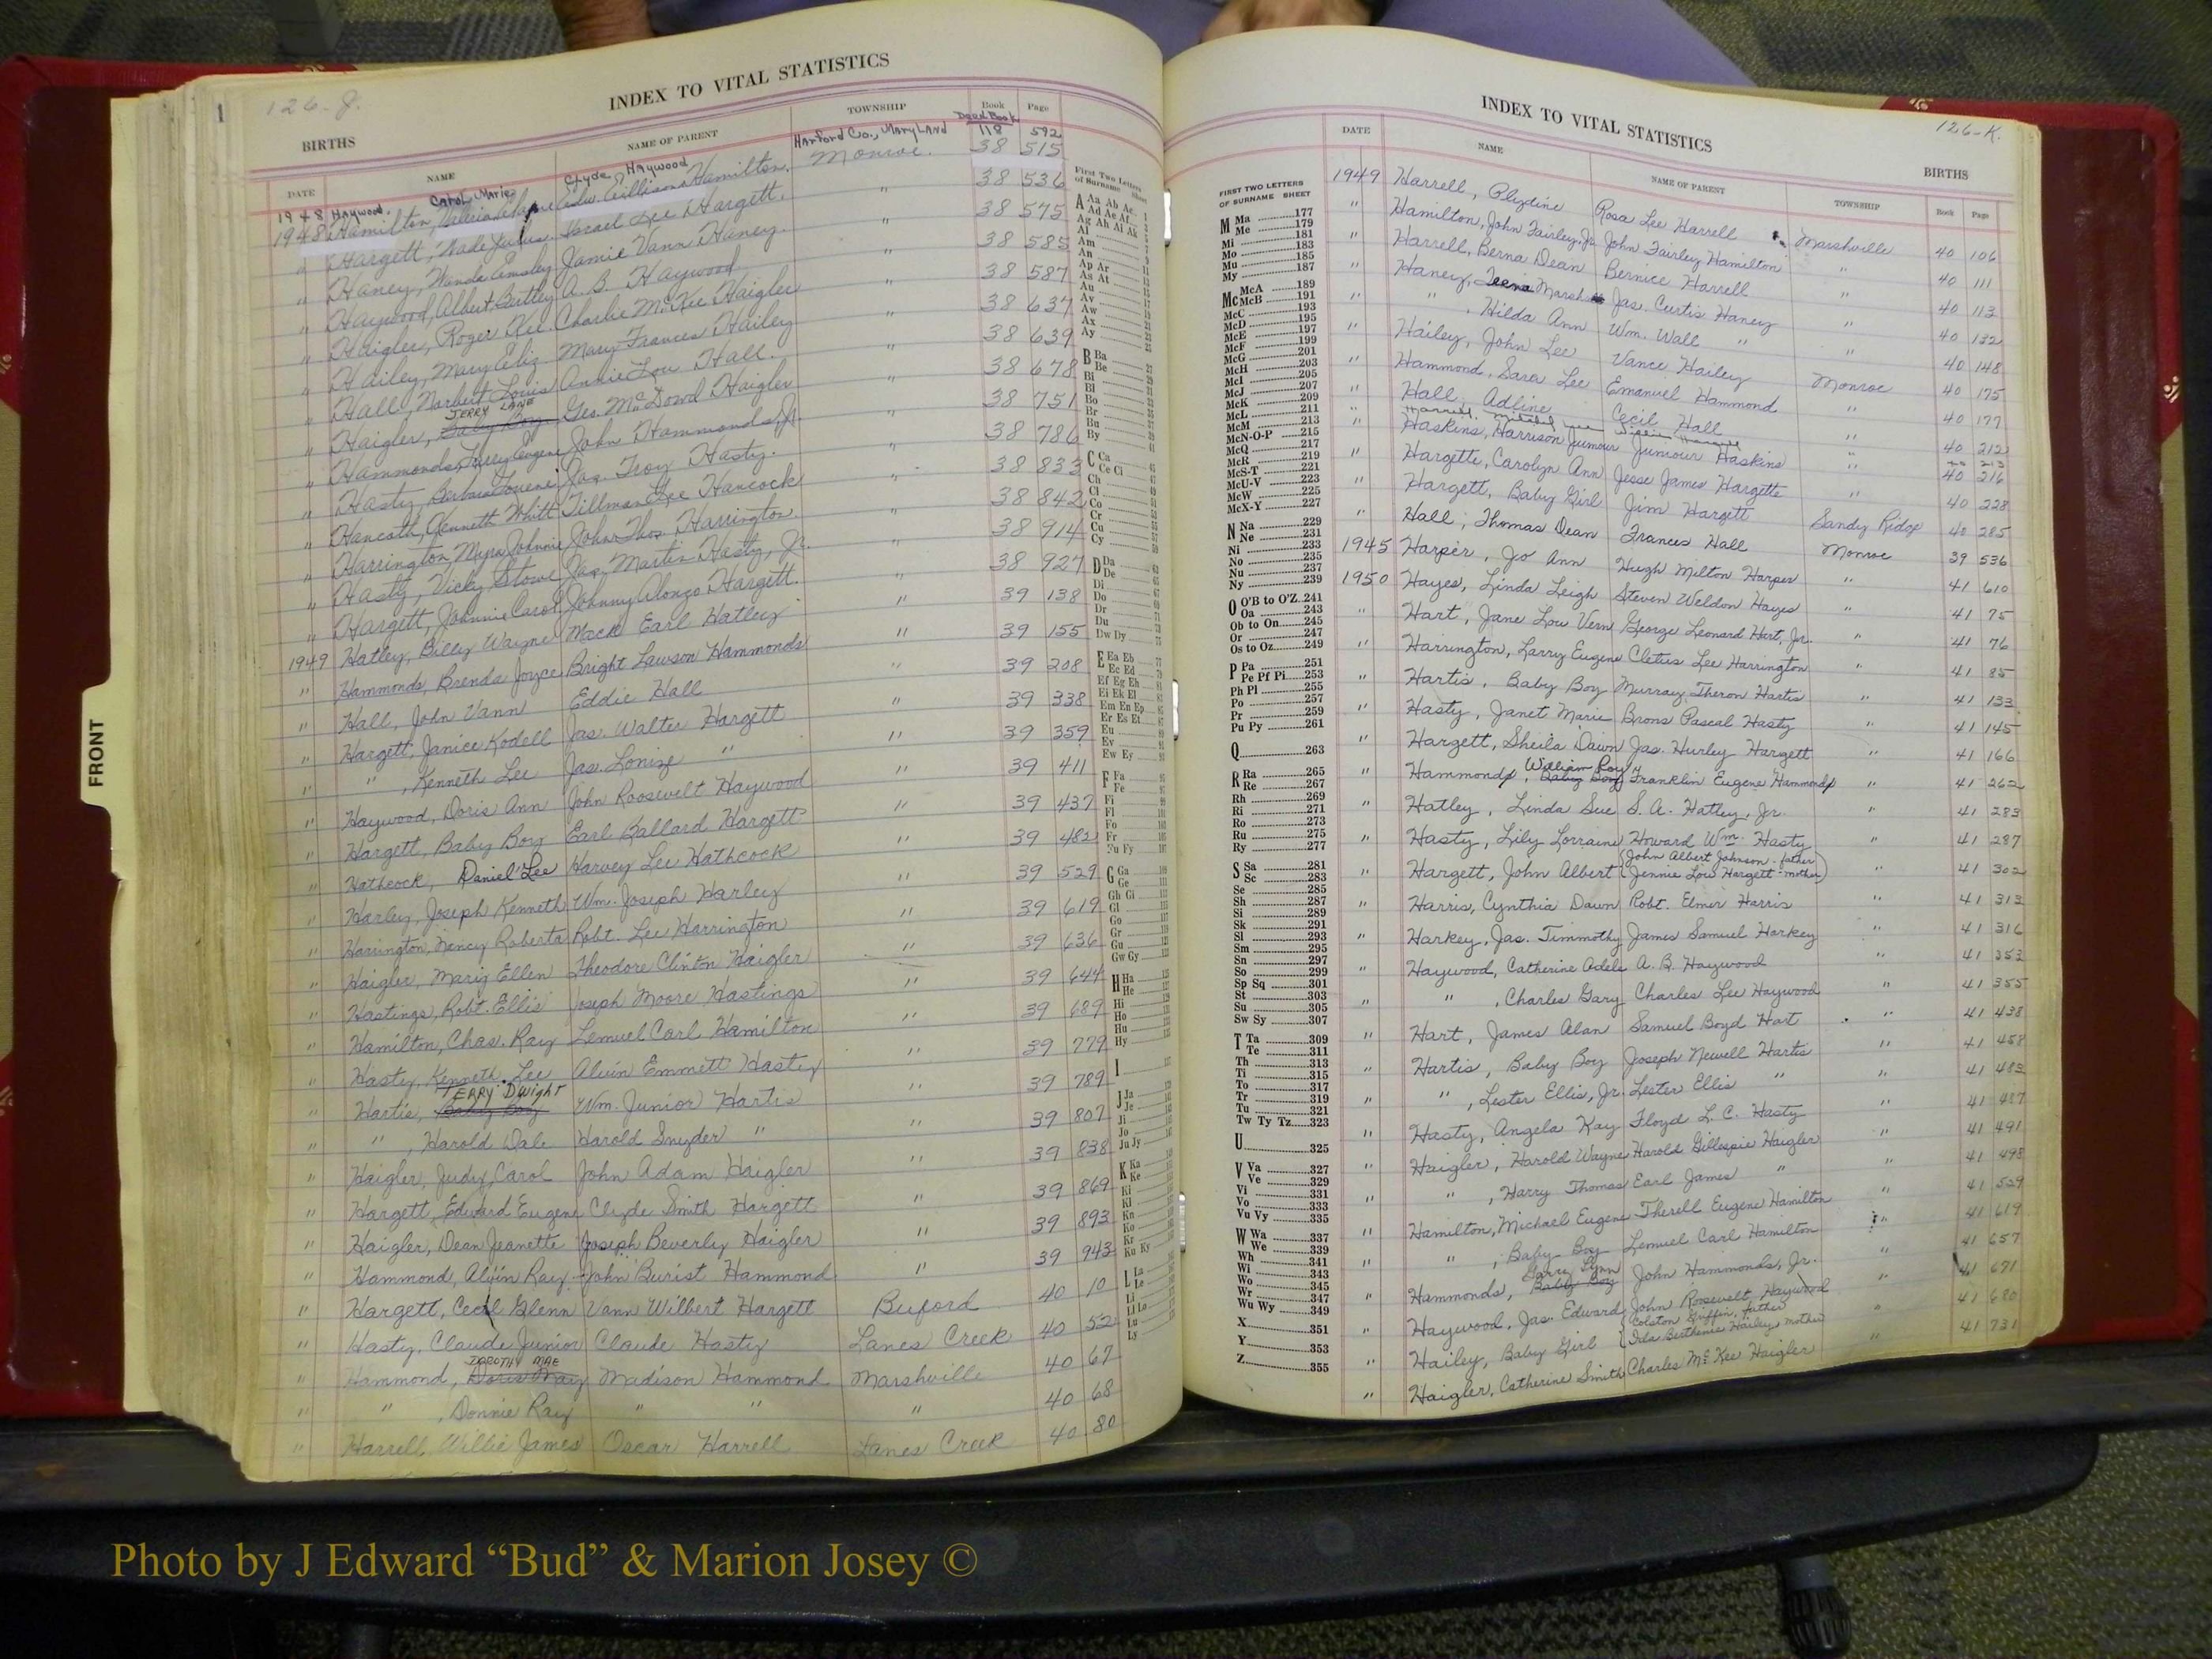 126-J.
INDEX TO VITAL STATISTICS
BIRTHS
DATE NAME NAME OF PARENT TOWNSHIP Book Page
1948 Haywood, Carol Marie Clyde Haywood Harford Co., Maryland Deed Book 118 592
1948 Hamilton, Hamilton. Monroe. 38 515
" Hargett, Wade Israel Lee Hargett. " 38 536
" Haney, Wanda Jamie Vann Haney. " 38 575
" Haywood, Albert Butley A. B. Haywood " 38 585
" Haigler, Roger Kee Charlie McKee Haigler " 38 587
" Hailey, Mary Eliz Mary Frances Hailey " 38 637
" Hall, Norbert Louis Annie Lou Hall. " 38 639
" Haigler, Baby Boy JERRY LANE Geo. McDowd Haigler " 38 678
" Hammonds, Larry Eugene John Hammonds, Jr. " 38 751
" Hasty, Barbara Jas. Troy Hasty. " 38 786
" Kenneth Whitt Tillman Lee Hancock " 38 833
" Harrington, Myra Johnnie John Thos. Harrington. " 38 842
" Hasty, Vicky Stowe Jas. Martin Hasty, Jr. " 38 914
" Hargett, Johnnie Carol Johnny Alonzo Hargett. " 38 927
1949 Hatley, Billy Wayne Mack Earl Hatley " 39 138
" Hammonds, Brenda Joyce Bright Lawson Hammonds " 39 155
" Hall, John Vann Eddie Hall " 39 208
" Hargett, Janice Kodell Jas. Walter Hargett " 39 338
" " , Kenneth Lee Jas. Lonize " " 39 359
" Haywood, Doris Ann John Roosevelt Haywood " 39 411
" Hargett, Baby Boy Earl Ballard Hargett " 39 437
" Hathcock, Daniel Lee Harvey Lee Hathcock " 39 482
" Harley, Joseph Kenneth Wm. Joseph Harley " 39 529
" Harrington, Nancy Roberta Robt. Lee Harrington " 39 619
" Haigler, Mary Ellen Theodore Clinton Haigler " 39 636
" Hastings, Robt. Ellis Joseph Moore Hastings " 39 644
" Hamilton, Chas. Ray Lemuel Carl Hamilton " 39 689
" Hasty, Kenneth Lee Alvin Emmett Hasty " 39 779
" Hartis, Baby Boy TERRY Dwight Wm. Junior Hartis " 39 789
" " , Harold Dale Harold Snyder " " 39 807
" Haigler, Judy Carol John Adam Haigler " 39 838
" Hargett, Edward Eugene Clyde Smith Hargett " 39 869
" Haigler, Dean Jeanette Joseph Beverly Haigler " 39 893
" Hammond, Alvin Ray John Burist Hammond " 39 943
" Hargett, Cecil Glenn Vann Wilbert Hargett Buford 40 10
" Hasty, Claude Junior Claude Hasty Lanes Creek 40 52
" Hammond, Doris May DOROTHY MAE Madison Hammond Marshville 40 67
" " , Donnie Ray " " " 40 68
" Harrell, Willie James Oscar Harrell Lanes Creek 40 80
First Two Letters of Surname Sheet
A Aa Ab Ac
Ad Ae Af
Ag Ah Ai Ak
Al
Am
An
Ap Ar
As At
Au
Av
Aw
Ax
Ay
B Ba
Be
Bi
Bl
Bo
Br
Bu
By
C Ca
Ce Ci
Ch
Cl
Co
Cr
Cu
Cy
D Da
De
Di
Do
Dr
Du
Dw Dy
E Ea Eb
Ec Ed
Ef Eg Eh
Ei Ek El
Em En Ep
Er Es Et
Eu
Ev
Ew Ey
F Fa
Fe
Fi
Fl
Fo
Fr
Fu Fy
G Ga
Ge
Gh Gi
Gl
Go
Gr
Gu
Gw Gy
H Ha
He
Hi
Ho
Hu
Hy
I
J Ja
Je
Ji
Jo
Ju Jy
K Ka
Ke
Ki
Kl
Kn
Ko
Kr
Ku Ky
L La
Le
Li
Ll Lo
Lu
Ly
FRONT
126-K.
INDEX TO VITAL STATISTICS
BIRTHS
DATE NAME NAME OF PARENT TOWNSHIP Book Page
1949 Harrell, Rosa Lee Harrell Marshville 40 106
" Hamilton, John Fairley, Jr. John Fairley Hamilton " 40 111
" Harrell, Berna Dean Bernice Harrell " 40 113
" Haney, Marsh Jas. Curtis Haney " 40 132
" " , Hilda Ann Wm. Wall " " 40 148
" Hailey, John Lee Vance Hailey Monroe 40 175
" Hammond, Sara Lee Emanuel Hammond " 40 177
" Hall, Adline Cecil Hall " 40 212
" Haskins, Harrison Jumour Jumour Haskins " 40 216
" Hargette, Carolyn Ann Jesse James Hargette " 40 228
" Hargett, Baby Girl Jim Hargett Sandy Ridge 40 285
" Hall, Thomas Dean Frances Hall Monroe 39 536
1945 Harper, Jo Ann Hugh Milton Harper " 41 610
1950 Hayes, Linda Leigh Steven Weldon Hayes " 41 75
" Hart, Jane Lou Vern George Leonard Hart, Jr. " 41 76
" Harrington, Larry Eugene Cletus Lee Harrington " 41 85
" Hartis, Baby Boy Murray Theron Hartis " 41 133
" Hasty, Janet Marie Brons Pascal Hasty " 41 145
" Hargett, Sheila Dawn Jas. Hurley Hargett " 41 166
" Hammond, Baby Boy William Roy Franklin Eugene Hammond " 41 262
" Hatley, Linda Sue S. A. Hatley, Jr. " 41 283
" Hasty, Lily Lorraine Howard Wm. Hasty " 41 287
" Hargett, John Albert (John Albert Johnson - father Jennie Lois Hargett - mother) " 41 302
" Harris, Cynthia Dawn Robt. Elmer Harris " 41 313
" Harkey, Jas. Timmothy James Samuel Harkey " 41 316
" Haywood, Catherine Adele A. B. Haywood " 41 353
" " , Charles Gary Charles Lee Haywood " 41 355
" Hart, James Alan Samuel Boyd Hart " 41 438
" Hartis, Baby Boy Joseph Newell Hartis " 41 458
" " , Lester Ellis, Jr. Lester Ellis " " 41 483
" Hasty, Angela Kay Floyd L. C. Hasty " 41 487
" Haigler, Harold Wayne Harold Gillespie Haigler " 41 491
" " , Harry Thomas Earl James " " 41 498
" Hamilton, Michael Eugene Therell Eugene Hamilton " 41 529
" " , Baby Boy Lemuel Carl Hamilton " 41 619
" Hammonds, Baby Boy Lynn John Hammonds, Jr. " 41 657
" Haywood, Jas. Edward John Roosevelt Haywood " 41 671
" Hailey, Baby Girl (Colston Griffin, father Ida Berthenia Hailey, mother " 41 680
" Haigler, Catherine Smith Charles McKee Haigler " 41 731
FIRST TWO LETTERS OF SURNAME SHEET
M Ma 177
Me 179
Mi 181
Mo 183
Mu 185
My 187
Mc McA 189
McB 191
McC 193
McD 195
McE 197
McF 199
McG 201
McH 203
McI 205
McJ 207
McK 209
McL 211
McM 213
McN-O-P 215
McQ 217
McR 219
McS-T 221
McU-V 223
McW 225
McX-Y 227
N Na 229
Ne 231
Ni 233
No 235
Nu 237
Ny 239
O O'B to O'Z 241
Oa 243
Ob to On 245
Or 247
Os to Oz 249
P Pa 251
Pe Pf Pi 253
Ph Pl 255
Po 257
Pr 259
Pu Py 261
Q 263
R Ra 265
Re 267
Rh 269
Ri 271
Ro 273
Ru 275
Ry 277
S Sa 281
Sc 283
Se 285
Sh 287
Si 289
Sk 291
Sl 293
Sm 295
Sn 297
So 299
Sp Sq 301
St 303
Su 305
Sw Sy 307
T Ta 309
Te 311
Th 313
Ti 315
To 317
Tr 319
Tu 321
Tw Ty Tz 323
U 325
V Va 327
Ve 329
Vi 331
Vo 333
Vu Vy 335
W Wa 337
We 339
Wh 341
Wi 343
Wo 345
Wr 347
Wu Wy 349
X 351
Y 353
Z 355
Photo by J Edward “Bud” & Marion Josey ©